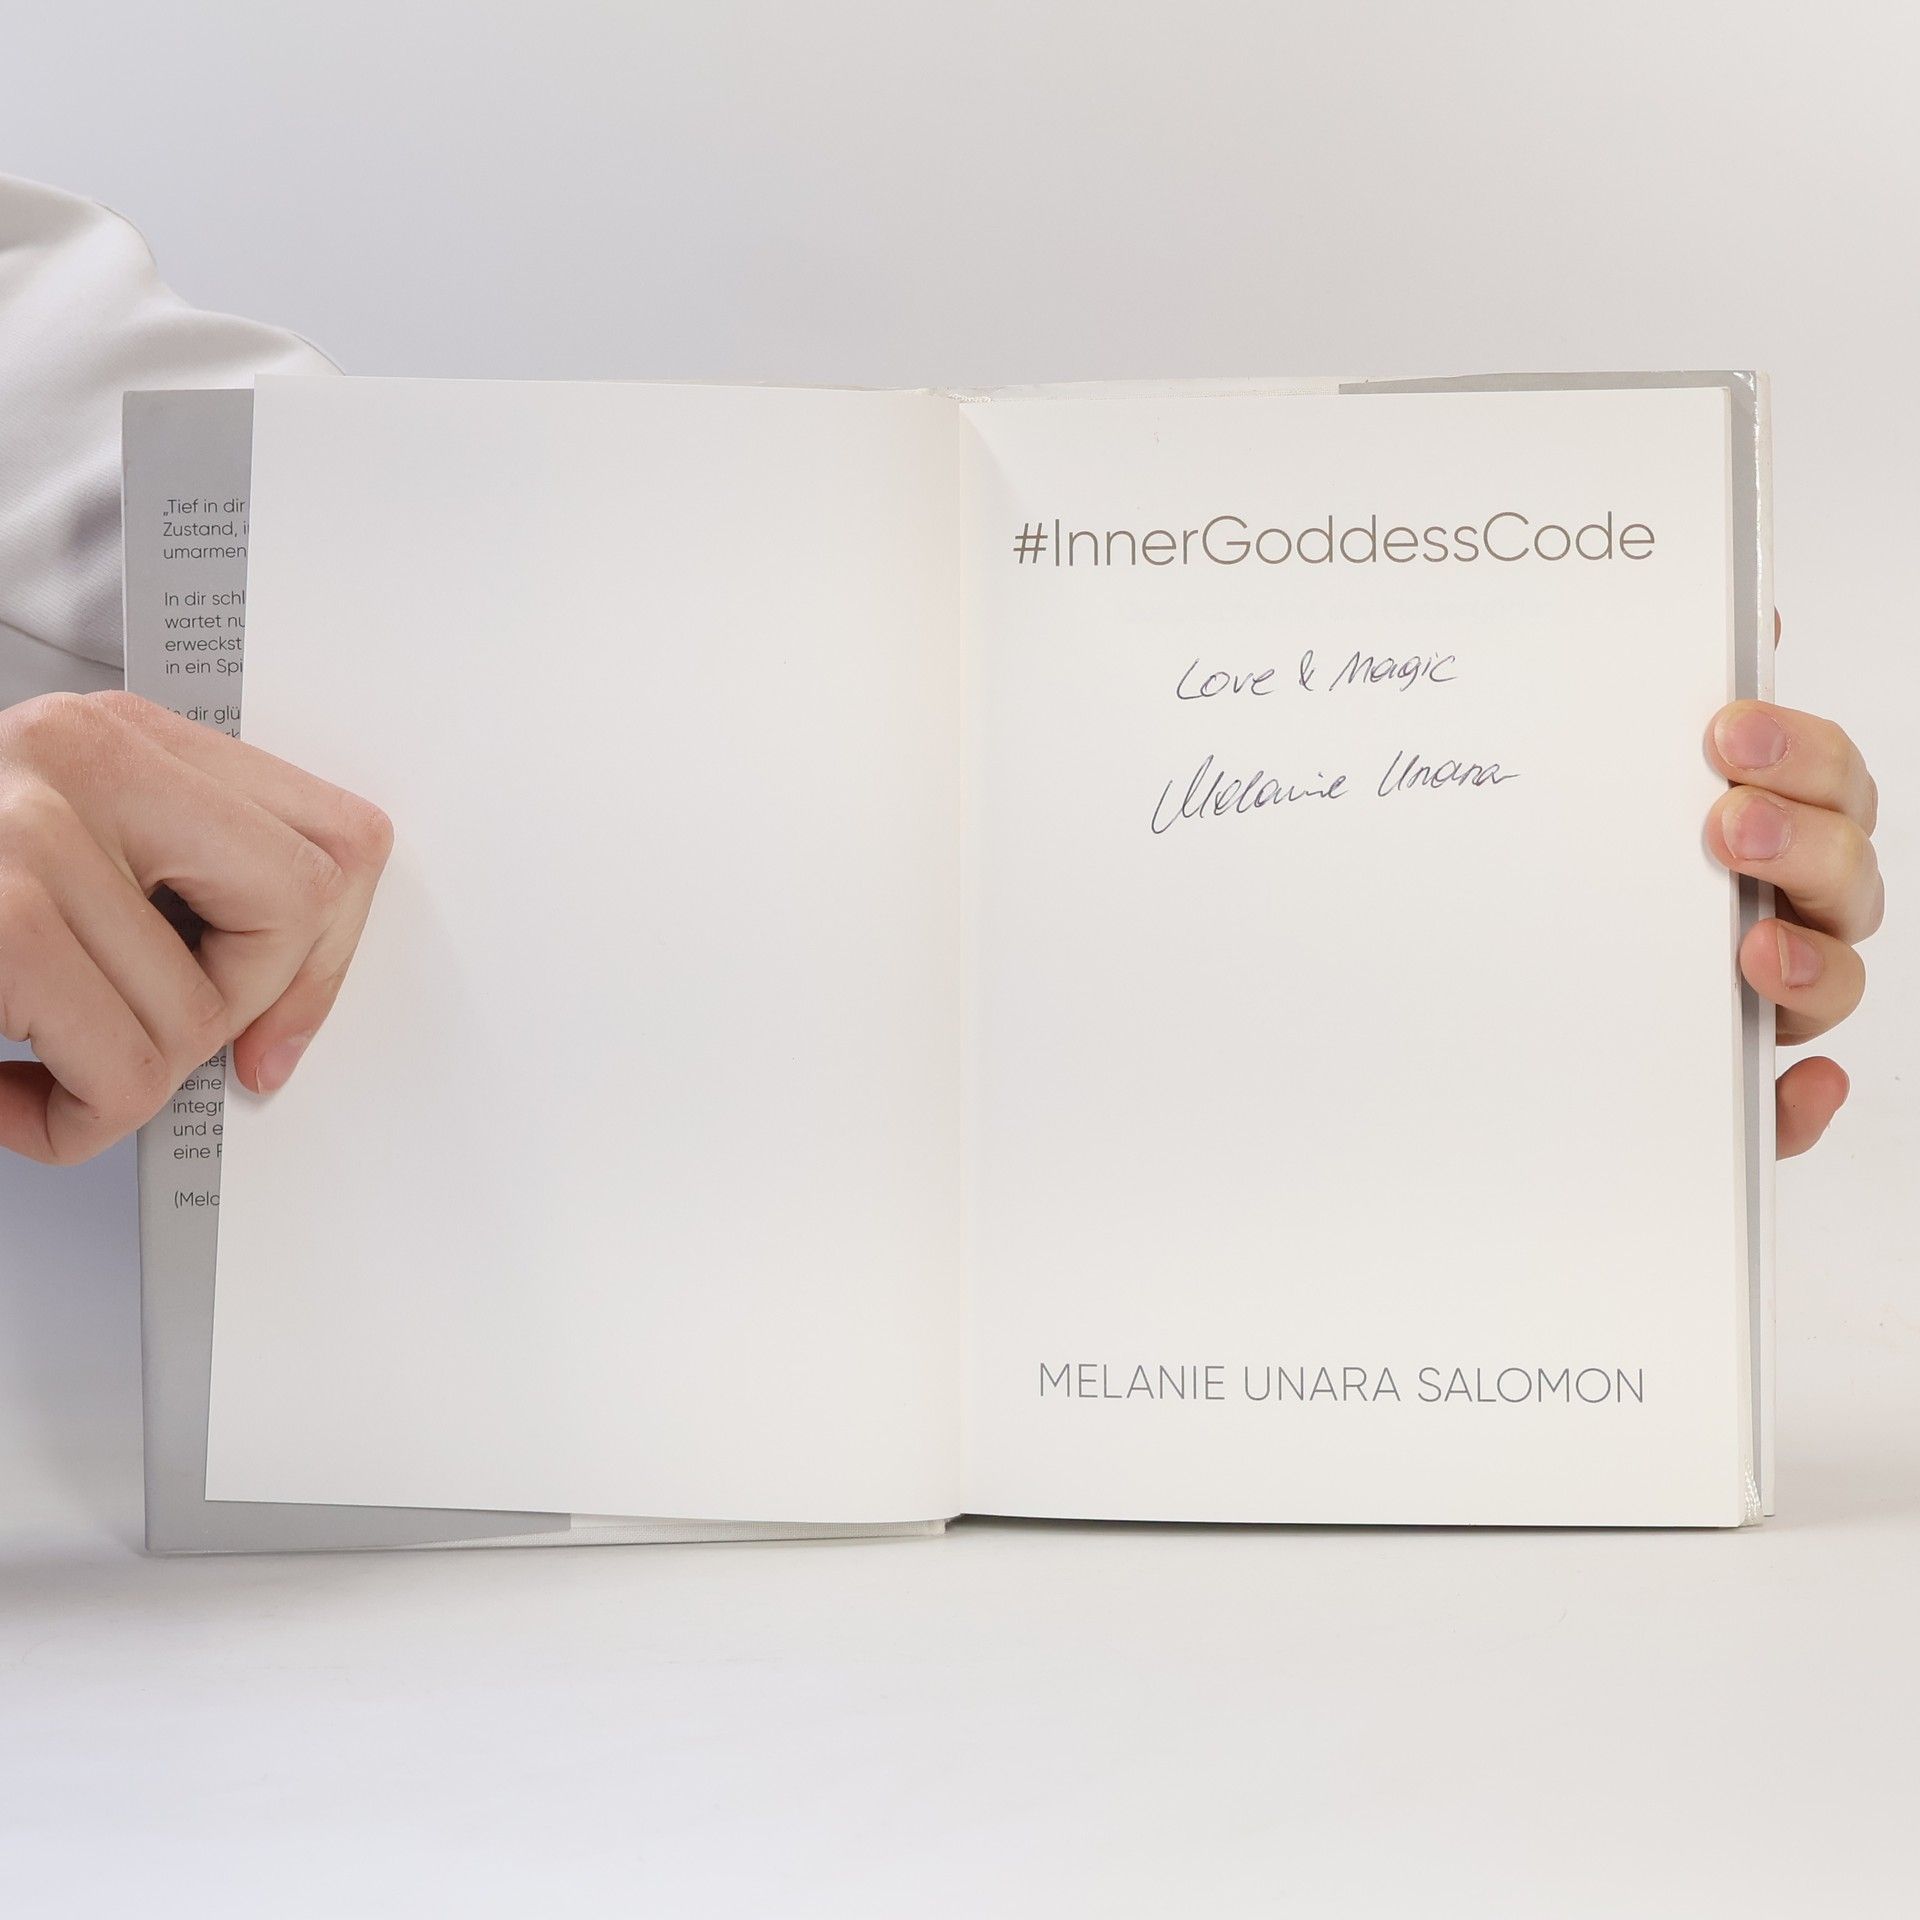 „Tief in dir
Zustand,
umarmen
In dir schl
wartet nu
erweckst
in ein Spi
dir glü
deine
integr
und e
eine
(Mela
#InnerGoddessCode
Love & Magic
Melanie Unara
MELANIE UNARA SALOMON